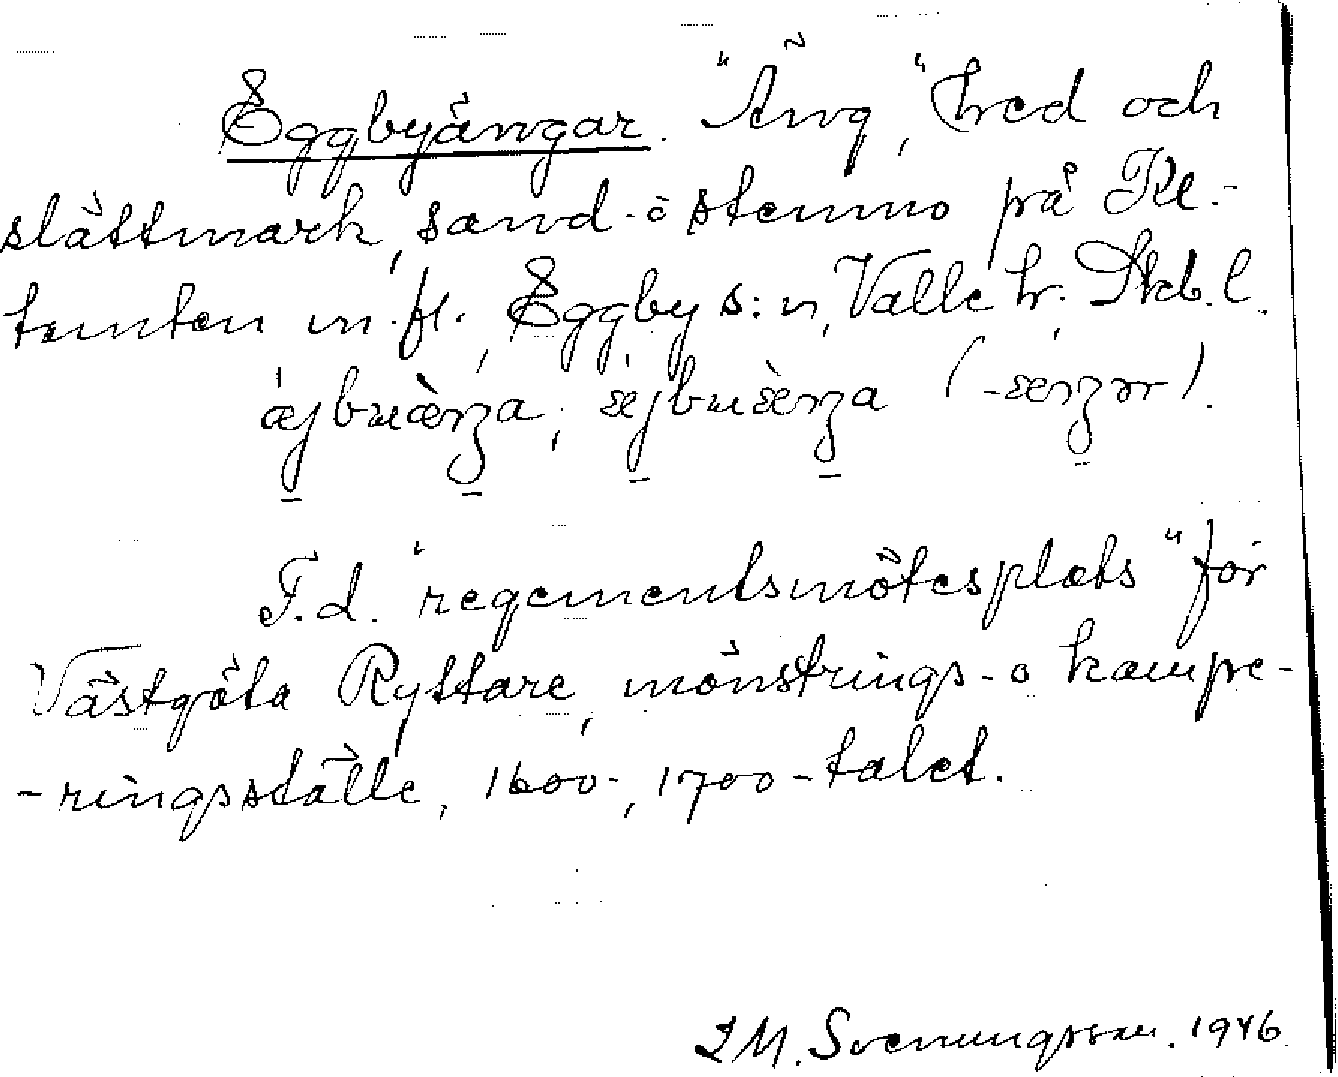 Eggbyängar. "Äng", hed och
slättmark, sand- o stenmo på Kl.-
tomten m. fl., Eggby s:n, Valle h., Skb. l.
äjbuæ̀ŋa, æjbuæ̀ŋa (-æŋar).
F.d. "regementsmötesplats" för
Västgöta Ryttare, mönstrings- o kampe-
-ringsställe, 1600-, 1700-talet.
M. Svenungsson. 1946